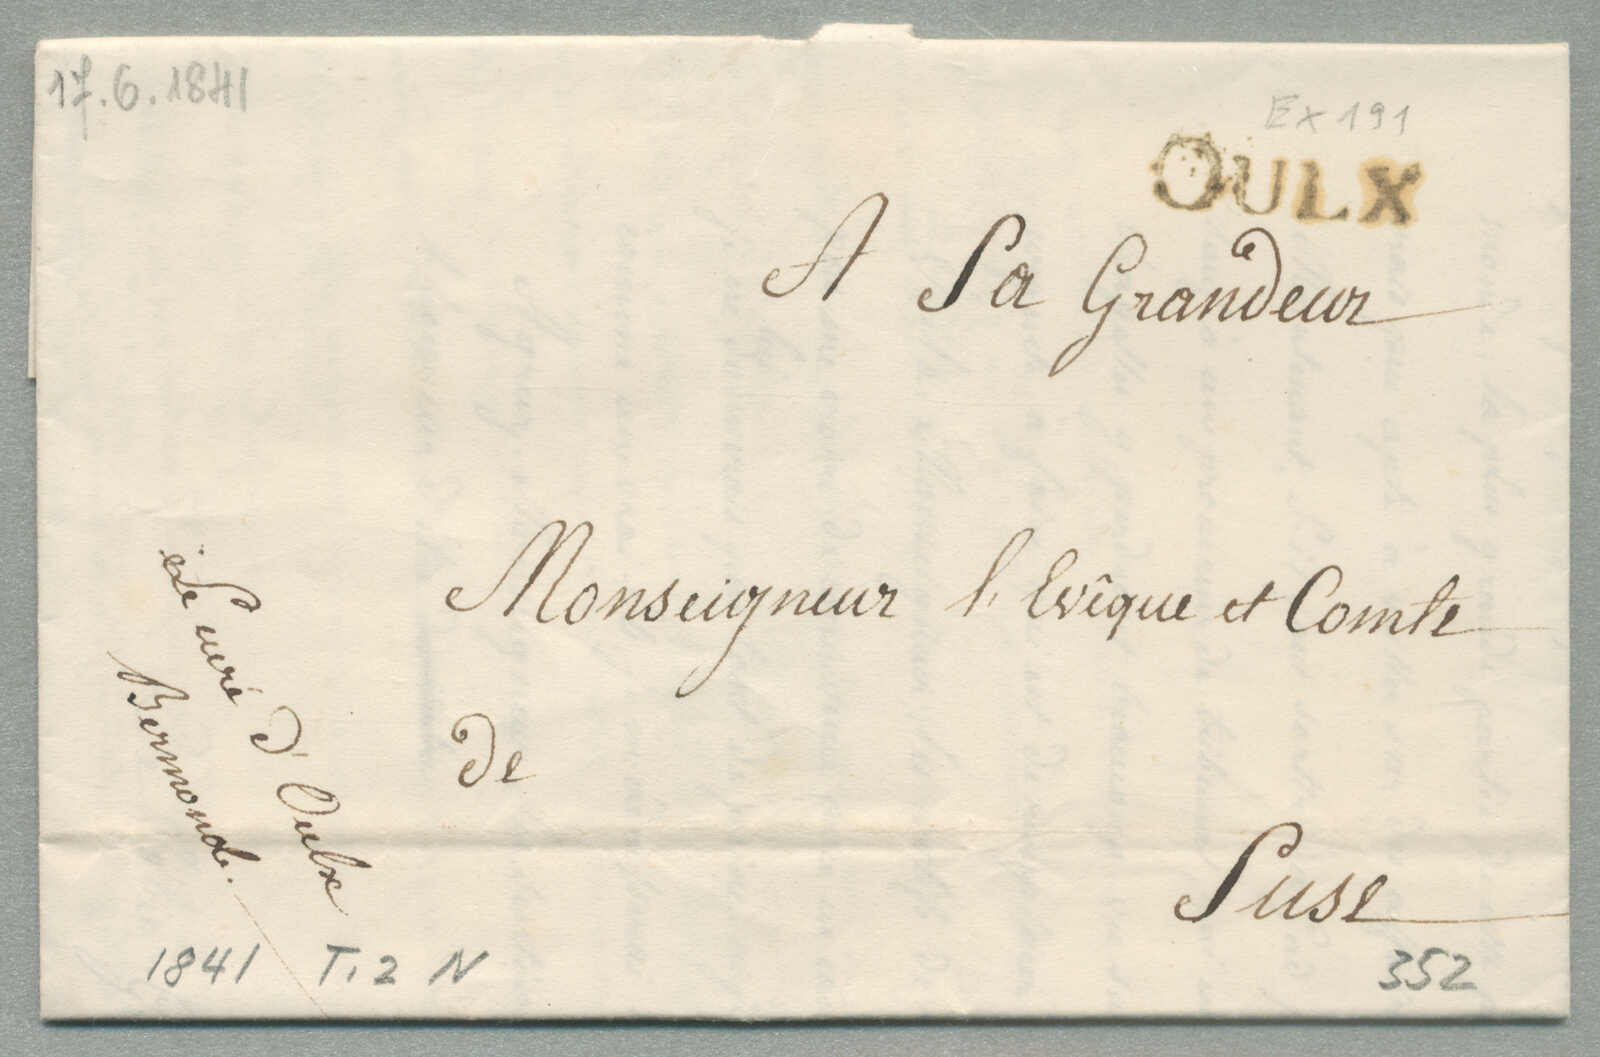 17.6.1841
Ex 191
OULX
A Sa Grandeur
Monseigneur l'Evêque et Comte
de
Suse
Le Curé d'Oulx
Bermond.
1841 T.2 N
352